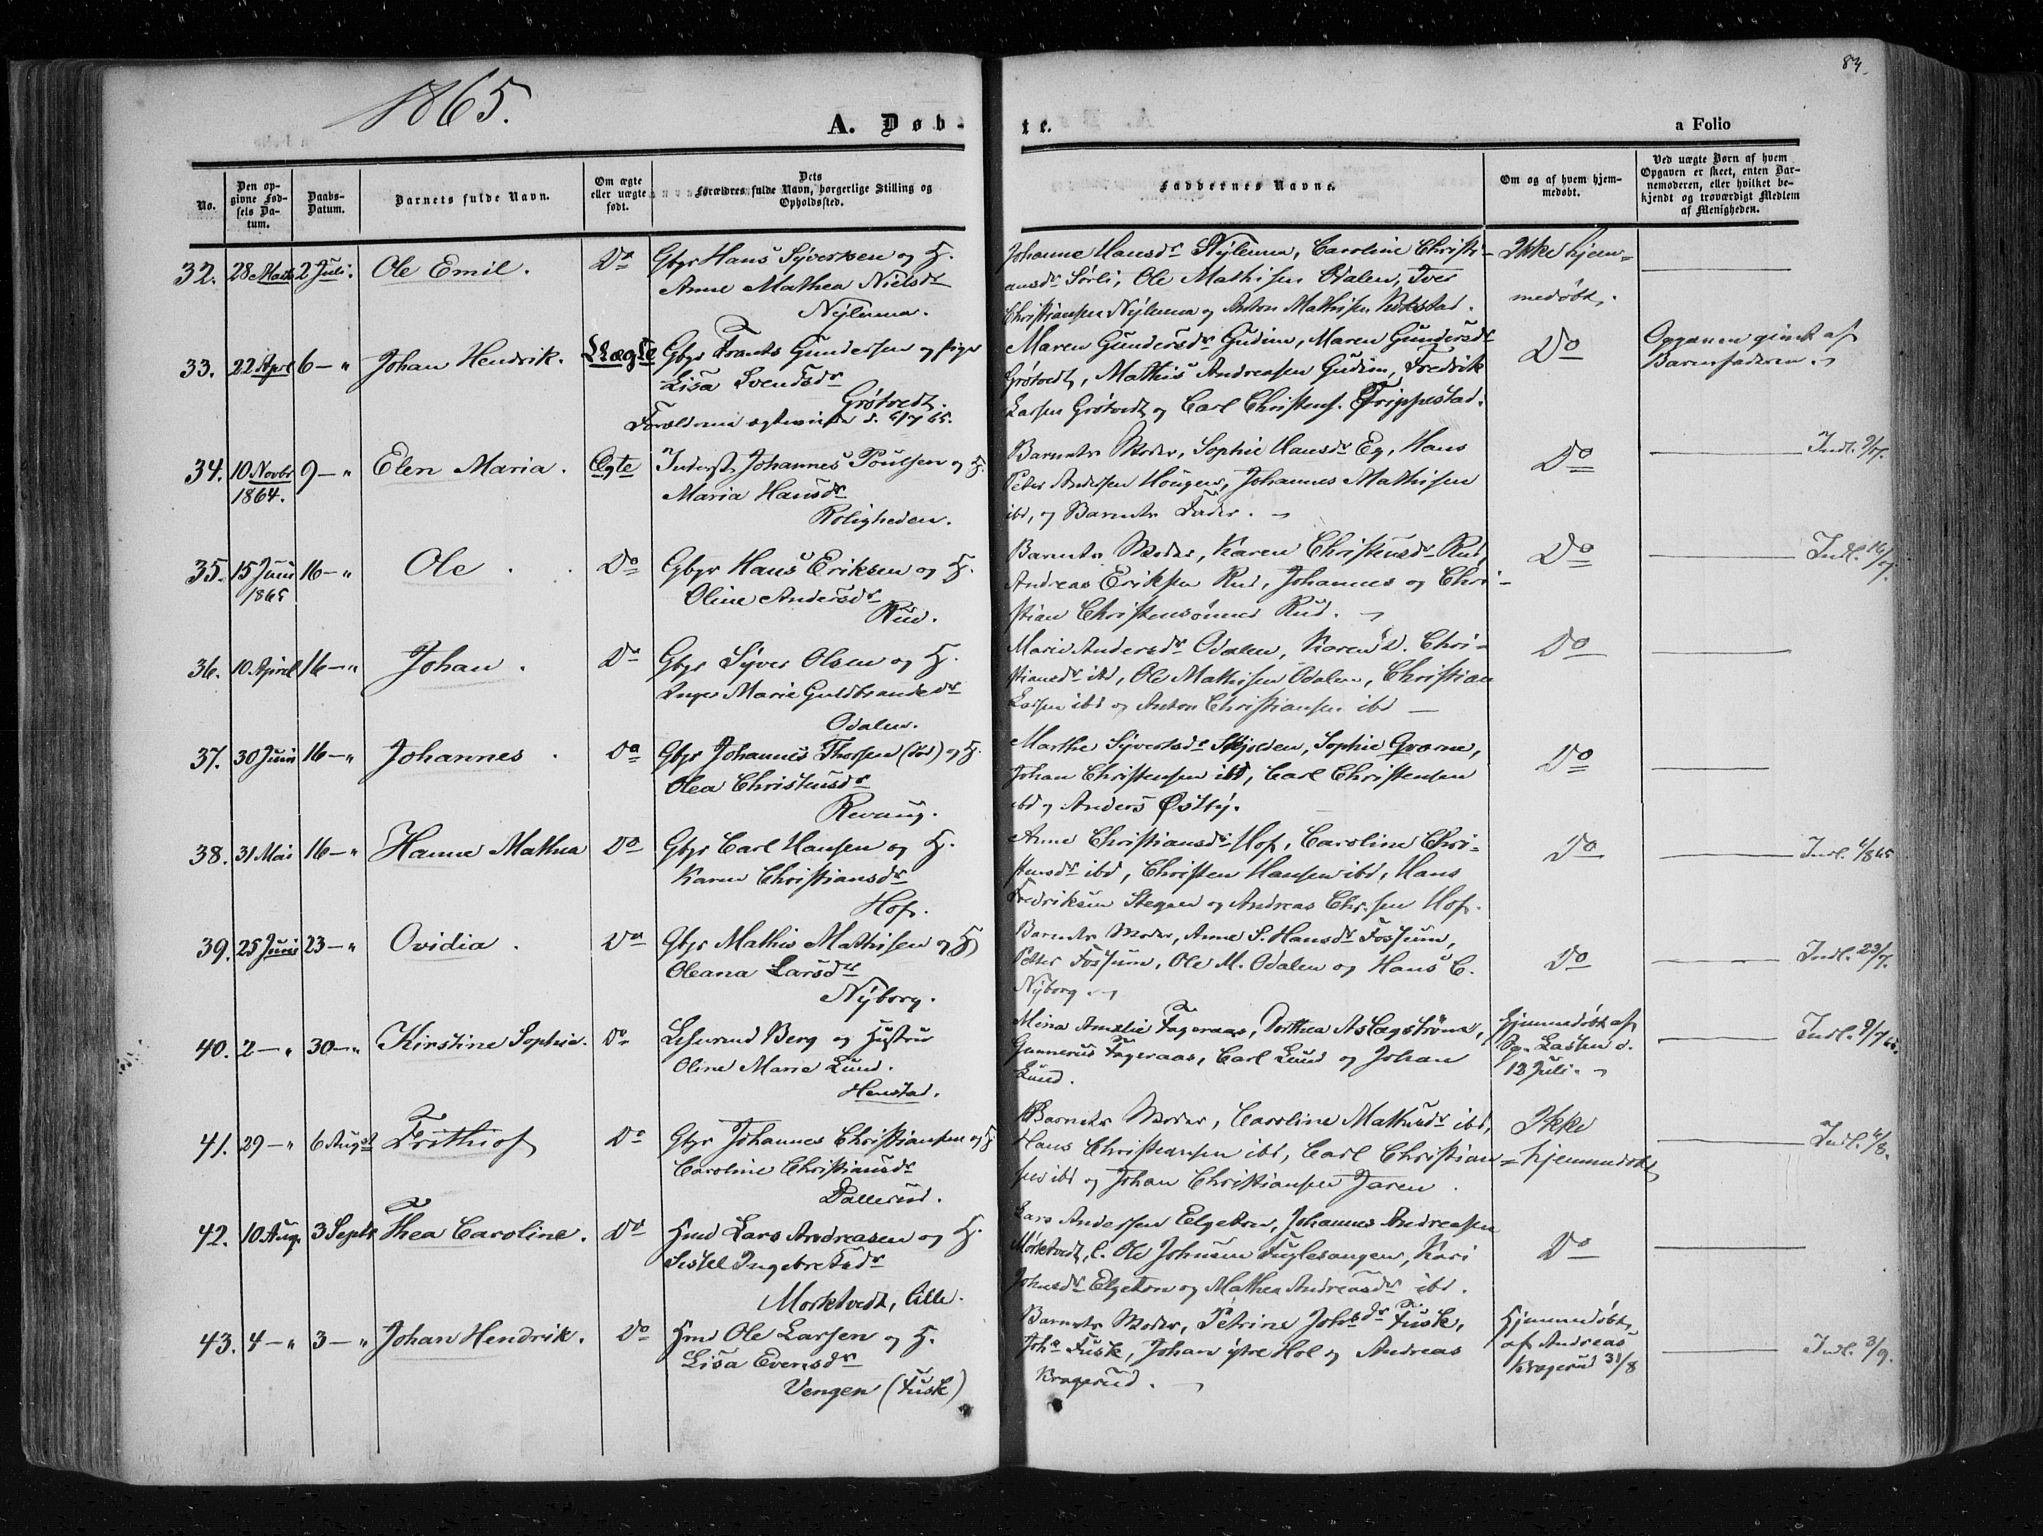 1865.
A. Døb-
te.
a Folio
84.
No.
Den op-
givne Fød-
sels Da-
tum.
Daabs-
Datum.
Barnets fulde Navn.
Om ægte
eller uægte
født.
Dets
Forældres fulde Navn, borgerlige Stilling og
Opholdssted.
Faddernes Navne.
Om og af hvem hjem-
medøbt.
Ved uægte Børn af hvem
Opgaven er skeet, enten Bar-
nemoderen, eller hvilket be-
kjendt og troværdigt Medlem
af Menigheden.
32. 28 Marts 2 Juli. Ole Emil. Do Gbgr Hans Syversen og H.
Anne Mathea Nielsdr
Nylenna.
Johanne Hansdr Nylenna, Caroline Christi-
ansdr Sørli, Ole Mathisen Odalen, Iver
Christiansen Nylenna og Anton Mathisen
Ikke hjem-
medøbt.
33. 22 April 6 — " Johan Hendrik. Uægte Gbgr Frants Gundersen og Pige
Lisa Svendsdr
Grøtvedt.
Forældrene ægteviede d. 6/7 65.
Maren Gundersdr Gudim, Maren Gundersdr
Grøtvedt, Mathis Andreasen Gudim, Fredrik
Larsen Grøtvedt og Carl Christens. Trippestad.
Do
Opgaven givet af
Barnefaderen.
34. 10 Novbr
1864. 9 — " Elen Maria. Ægte Inderst Johannes Poulsen og H.
Maria Hansdr
Roligheden.
Barnets Moder, Sophie Hansdr Eg, Hans
Peter Andersen Hougen, Johannes Mathisen
ibd, og Barnets Fader.
Do
Indl. 9/7.
35. 15 Juni
1865 16 — " Ole. Do Gbgr Hans Eriksen og H.
Oline Andersdr
Rud.
Barnets Moder, Karen Christensdr Rud,
Andreas Eriksen Rud, Johannes og Chri-
stian Christensønner Rud.
Do
Indl. 16/7.
36. 10 April 16 — " Johan. Do Gbgr Syver Olsen og H.
Inger Marie Guldbrandsdr
Odalen.
Marie Andersdr Odalen, Karen D. Chri-
stiansdr ibd, Ole Mathisen Odalen, Christian
Larsen ibd og Anton Christiansen ibd —
Do
37. 30 Juni 16 — " Johannes. Do Gbgr Johannes Thorsen (død) og H.
Olea Christensdr
Revaug.
Marthe Syvertsdr Skjolden, Sophie Qværne,
Johan Christensen ibd, Carl Christensen
ibd og Anders Østby.
Do
38. 31 Mai 16 — " Hanne Mathea Do Gbgr Carl Hansen og H.
Karen Christiansdr
Hof.
Anne Christiansdr Hof, Caroline Chri-
stensdr ibd, Christen Hansen ibd, Hans
Fredriksen Stegen og Andreas Chr.sen Hof.
Do
Indl. 6/8 65
39. 25 Juni 23 — " Ovidia. Do Gbgr Mathis Mathisen og H.
Oleana Larsdr
Nyborg.
Barnets Moder, Anne S. Hansdr Fossum,
Petter Fossum, Ole M. Odalen og Hans C.
Nyborg.
Do
Indl. 23/7.
40. 2 — " 30 — " Kirstine Sophie. Do Berg og Hustru
Oline Marie Lund.
Henstad.
Mina Amalie Fageraas, Dorthea Aslagstrøm,
Gunnerus Fageraas, Carl Lund og Johan
Lund.
Hjemmedøbt af
Lassen d.
12 Juli.
Indl. 9/7 65.
41. 29 — " 6 Augst Frithiof Do Gbgr Johannes Christiansen og H.
Caroline Christiansdr
Dallerud.
Barnets Moder, Caroline Mathisdr ibd,
Hans Christiansen ibd, Carl Christian-
sen ibd og Johan Christiansen Jaren.
Ikke
hjemmedøbt
Indl. 6/8.
42. 10 Aug. 3 Septr Thea Caroline. Do Hmd Lars Andreasen og H.
Sissel Ingebretsdr
Morktvedt, lille.
Lars Andersen Elgeton, Johannes Andreasen
Mørktvedt, l. Ole Johnsen Fuglesangen, Kari
Johnsdr Elgeton og Mathea Andreasdr ibd.
Do
43. 4 — " 3 — " Johan Hendrik. Do Hmd Ole Larsen og H.
Lisa Evensdr
Vengen (Fusk)
Barnets Moder, Petrine Johsdr Fusk,
Johs Fusk, Johan østre Hol og Andreas
Kragerud.
Hjemmedøbt
af Andreas
Kragerud 31/8
Indl. 3/9.